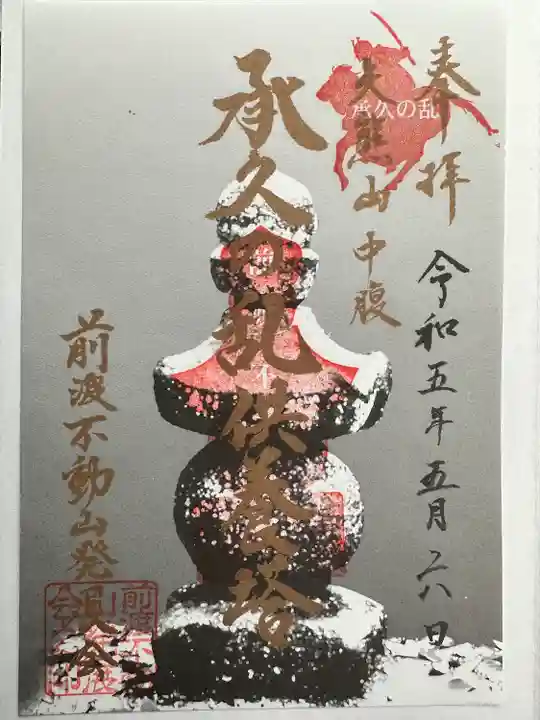 奉拝
承久の乱
大熊山中腹
令和五年五月六日
承久の乱供養塔
前波不動山発展会